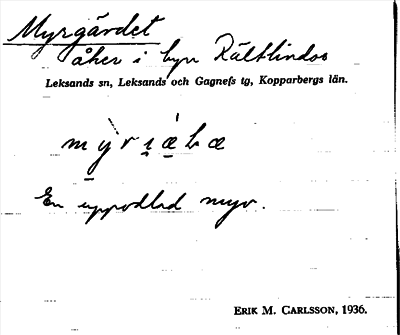 Myrgärdet
åker i byn Rältlindor
Leksands sn, Leksands och Gagnefs tg, Kopparbergs län.
En uppodlad myr.
ERIK M. CARLSSON, 1936.